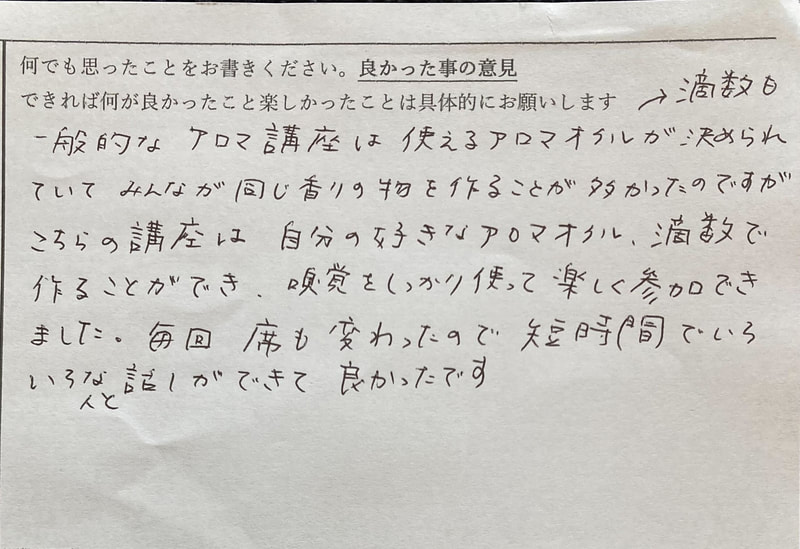 何でも思ったことをお書きください。良かった事の意見
できれば何が良かったこと楽しかったことは具体的にお願いします
→滴数も
一般的な アロマ講座は 使えるアロマオイルが 決められ
ていて みんなが 同じ香りの物を作ることが 多かったのですが
こちらの講座は 自分の好きなアロマオイル、滴数で
作ることができ、嗅覚をしっかり使って 楽しく参加でき
ました。毎回 席も 変わったので 短時間でいろ
いろな人と話しができて 良かったです